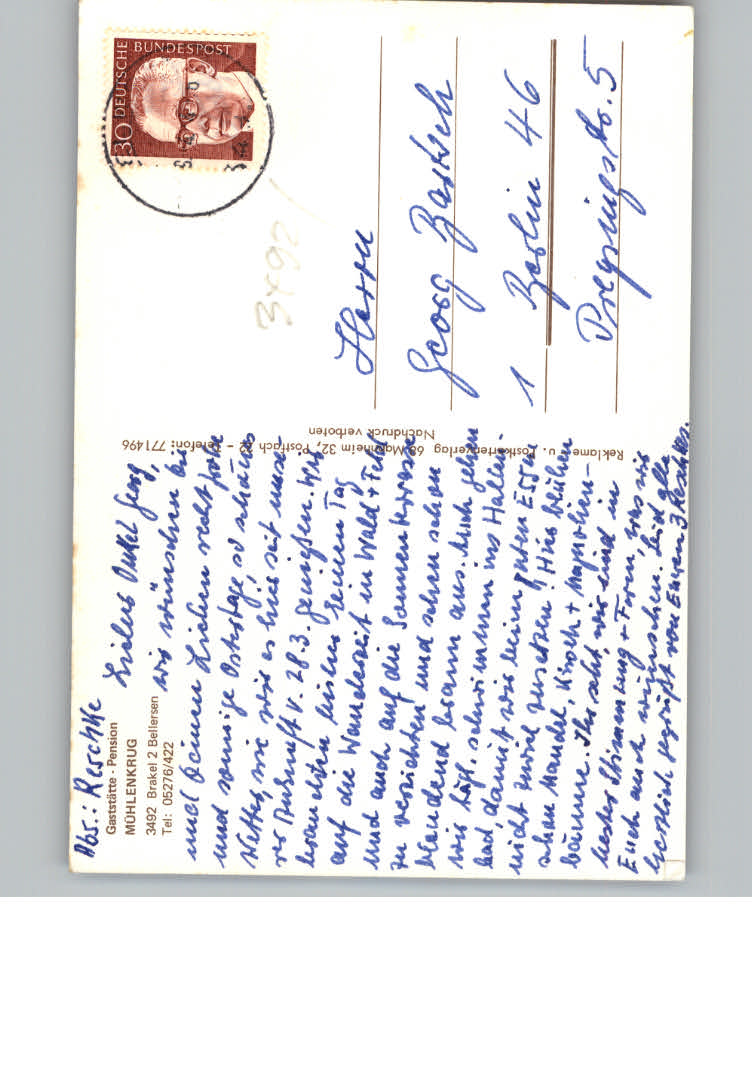 Abs.: Reschke
Gaststätte - Pension
MÜHLENKRUG
3492 Brakel 2 Bellersen
Tel: 05276/422
Liebes Onkel Georg,
wir wünschen Dir
und Deinen Lieben recht frohe
und sonnige Ostertage so schönes
Wetter, wie wir es hier seit unse-
rer Ankunft v. 28.3. genießen. Wir
brauchten bisher keinen Tag
auf die Wanderzeit in Wald + Feld
und auch auf die Sonnenterrasse
zu verzichten und sehen schon
blendend braun aus. Auch gehen
wir tägl. schwimmen ins Hallen-
bad, damit wir beim guten Essen
nicht zuviel ansetzen. Hier blühen
schon Mandel, Kirsch + Magnolien-
bäume. Ihr seht, wir sind in
bester Stimmung + Form, was wir
Euch auch wünschen. Seid alle
herzlich gegrüßt von Euren 3 Reschkes.
Reklame- u. Postkartenverlag 68 Mannheim 32, Postfach 32 - Telefon: 771496
Nachdruck verboten
DEUTSCHE BUNDESPOST
30
Herrn
Georg Bartsch
1 Berlin 46
Preysingstr. 5